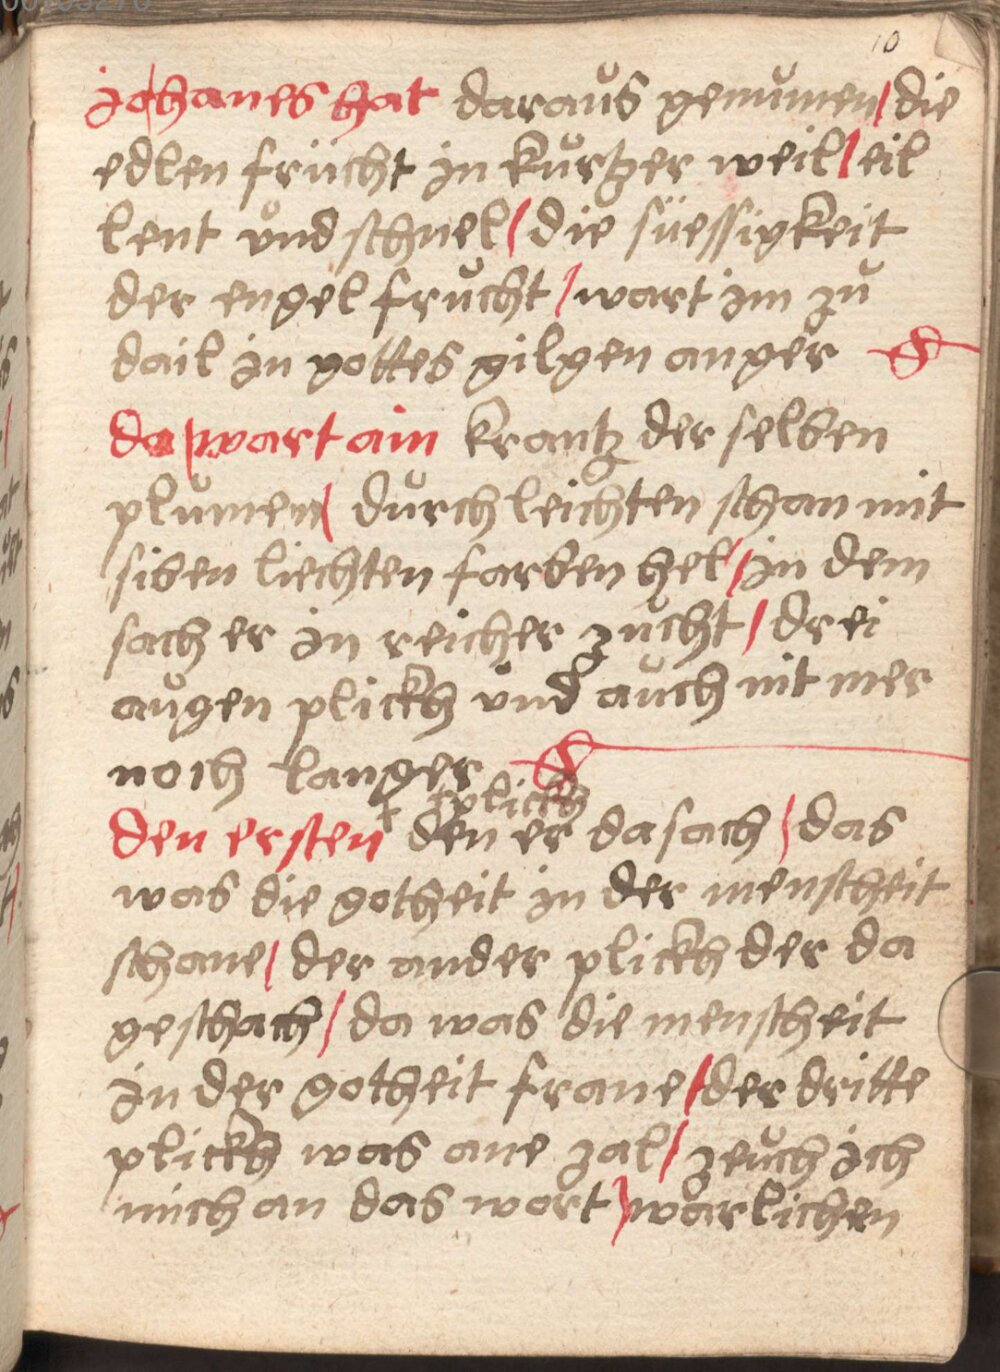 10
johanes hat daraus genumen / die
edlen frücht in kurtzer weil / eil
lent vnd schnel / die süessigkeit
der engel frucht / wart im zu
dail in gottes gilgen anger
da wart ain krantz der selben
plumen / durchleichten schan mit
siben liechten farben hel / in dem
sach er in reicher zucht / drei
augen plickh vnd auch nit mer
noch langer
plickh
den ersten den er da sach / das
was die gotheit in der menscheit
schane / der ander plickh der da
geschach / da was die menscheit
in der gotheit frane / der dritte
plickh was ane zal / zeuch ich
mich an das wort / warlichen